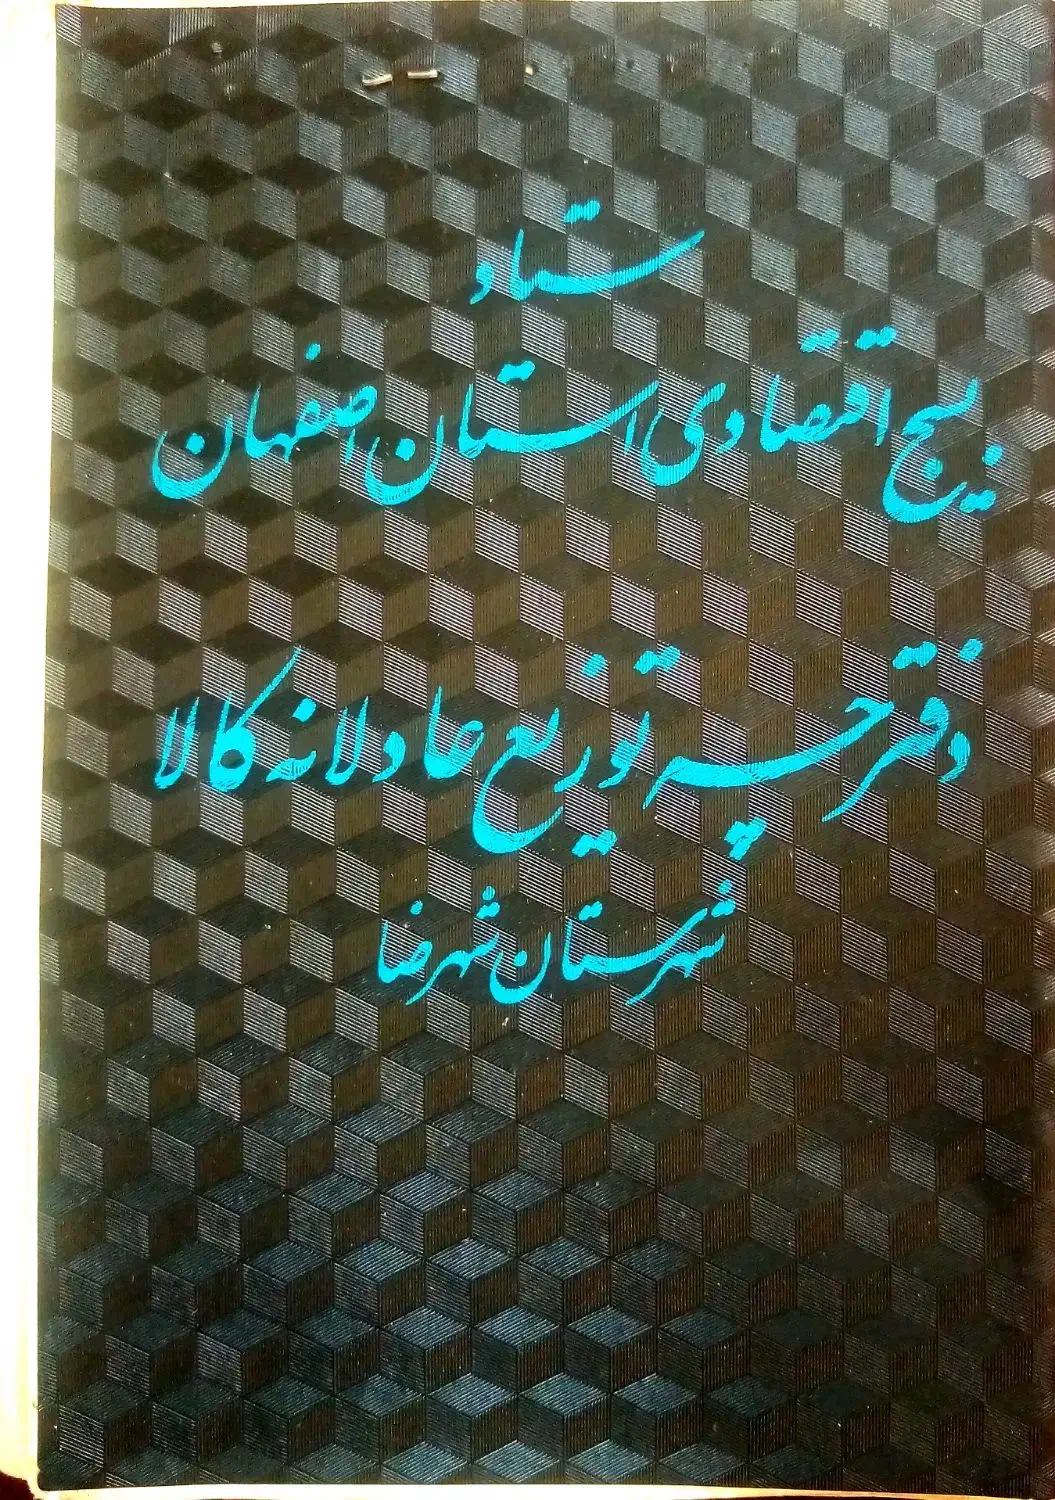 ستاد
بسیج اقتصادی استان اصفهان
دفترچه توزیع عادلانه کالا
شهرستان شهرضا